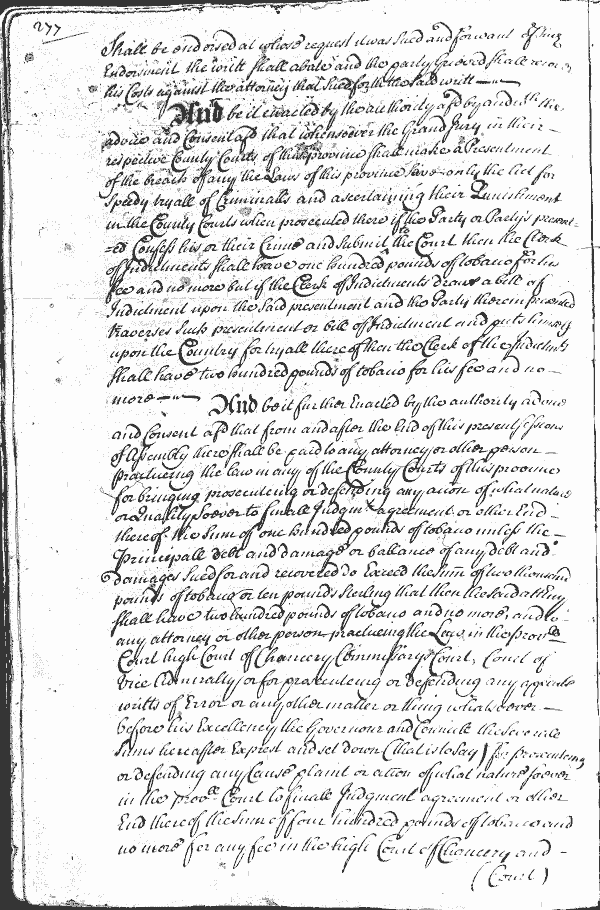 277
Shall be endorsed at whose request it was Sued and for want of Such
Endorsment the writt Shall abate and the party Grieved Shall recover
his Costs against the attorney that Sued forth the said writt
And be it enacted by the authority afd by and wth the
advice and Consent afd that whensoever the Grand Jury in their
respective County Courts of this province Shall make a Presentment
of the breach of any the Laws of this province Save only the Act for
Speedy tryall of Criminalls and ascertaining their Punishment
in the County Courts when prosecuted there if the Party or Partys present-
=ed Confess his or their Crime and Submit to the Court then the Clerk
of Indictments Shall have one hundred pounds of tobacco for his
fee and no more but if the Clerk of Indictments draw a bill of
Indictment upon the Said presentment and the Party therein presented
traverses Such presentment or bill of Indictment and puts himself
upon the Country for tryall there of then the Clerk of the Indictmts
Shall have two hundred pounds of tobacco for his fee and no
more And be it further Enacted by the authority advice
and Consent afd that from and after the End of this present Sessions
of Assembly there Shall be paid to any attorney or other person
practiceing the law in any of the County Courts of this province
for bringing prosecuteing or defending any action of what nature
or Quality Soever to finall Judgmt agreement or other End
there of the Sum of one hundred pounds of tobacco unless the
Principall debt and damage or ballance of any debt and
damages Sued for and recovered do Exceed the Sum of two thousand
pounds of tobacco or ten pounds Sterling that then the Said attorny
Shall have two hundred pounds of tobacco and no more, and to
any attorney or other person practiceing the Law in the Provll
Court high Court of Chancery Commissarys Court, Court of
Vice Admiralty or for prosecuteing or defending any appeale
writts of Error or any other matter or thing whatsoever
before his Excellency the Governour and Councile the Severale
Sums hereafter Exprest and set down (that is to Say) for prosecuteing
or defending any Cause plaint or action of what nature soever
in the Provll Court to finale Judgment agreement or other
End there of the Sum of four hundred pounds of tobacco and
no more for any fee in the high Court of Chancery and
(Court)